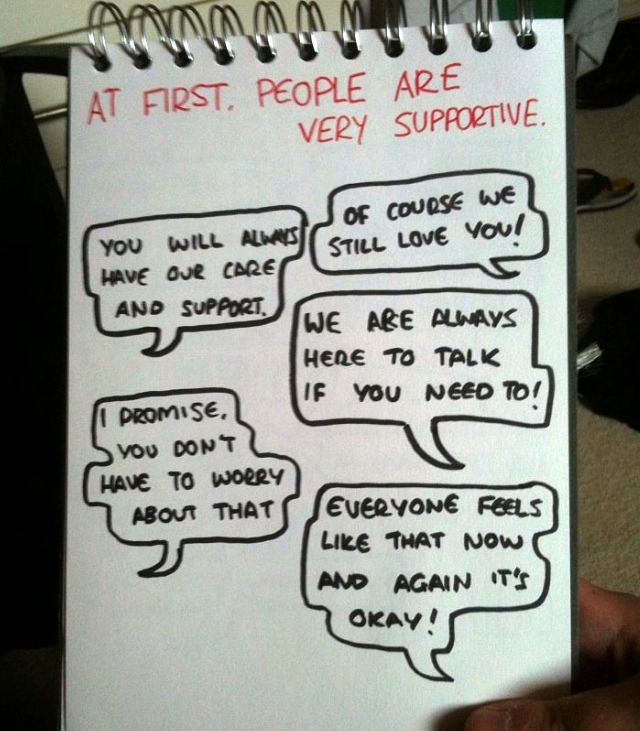 AT FIRST. PEOPLE ARE
VERY SUPPORTIVE.
YOU WILL ALWAYS
HAVE OUR CARE
AND SUPPORT.
OF COURSE WE
STILL LOVE YOU!
WE ARE ALWAYS
HERE TO TALK
IF YOU NEED TO!
I PROMISE,
YOU DON'T
HAVE TO WORRY
ABOUT THAT
EVERYONE FEELS
LIKE THAT NOW
AND AGAIN IT'S
OKAY!